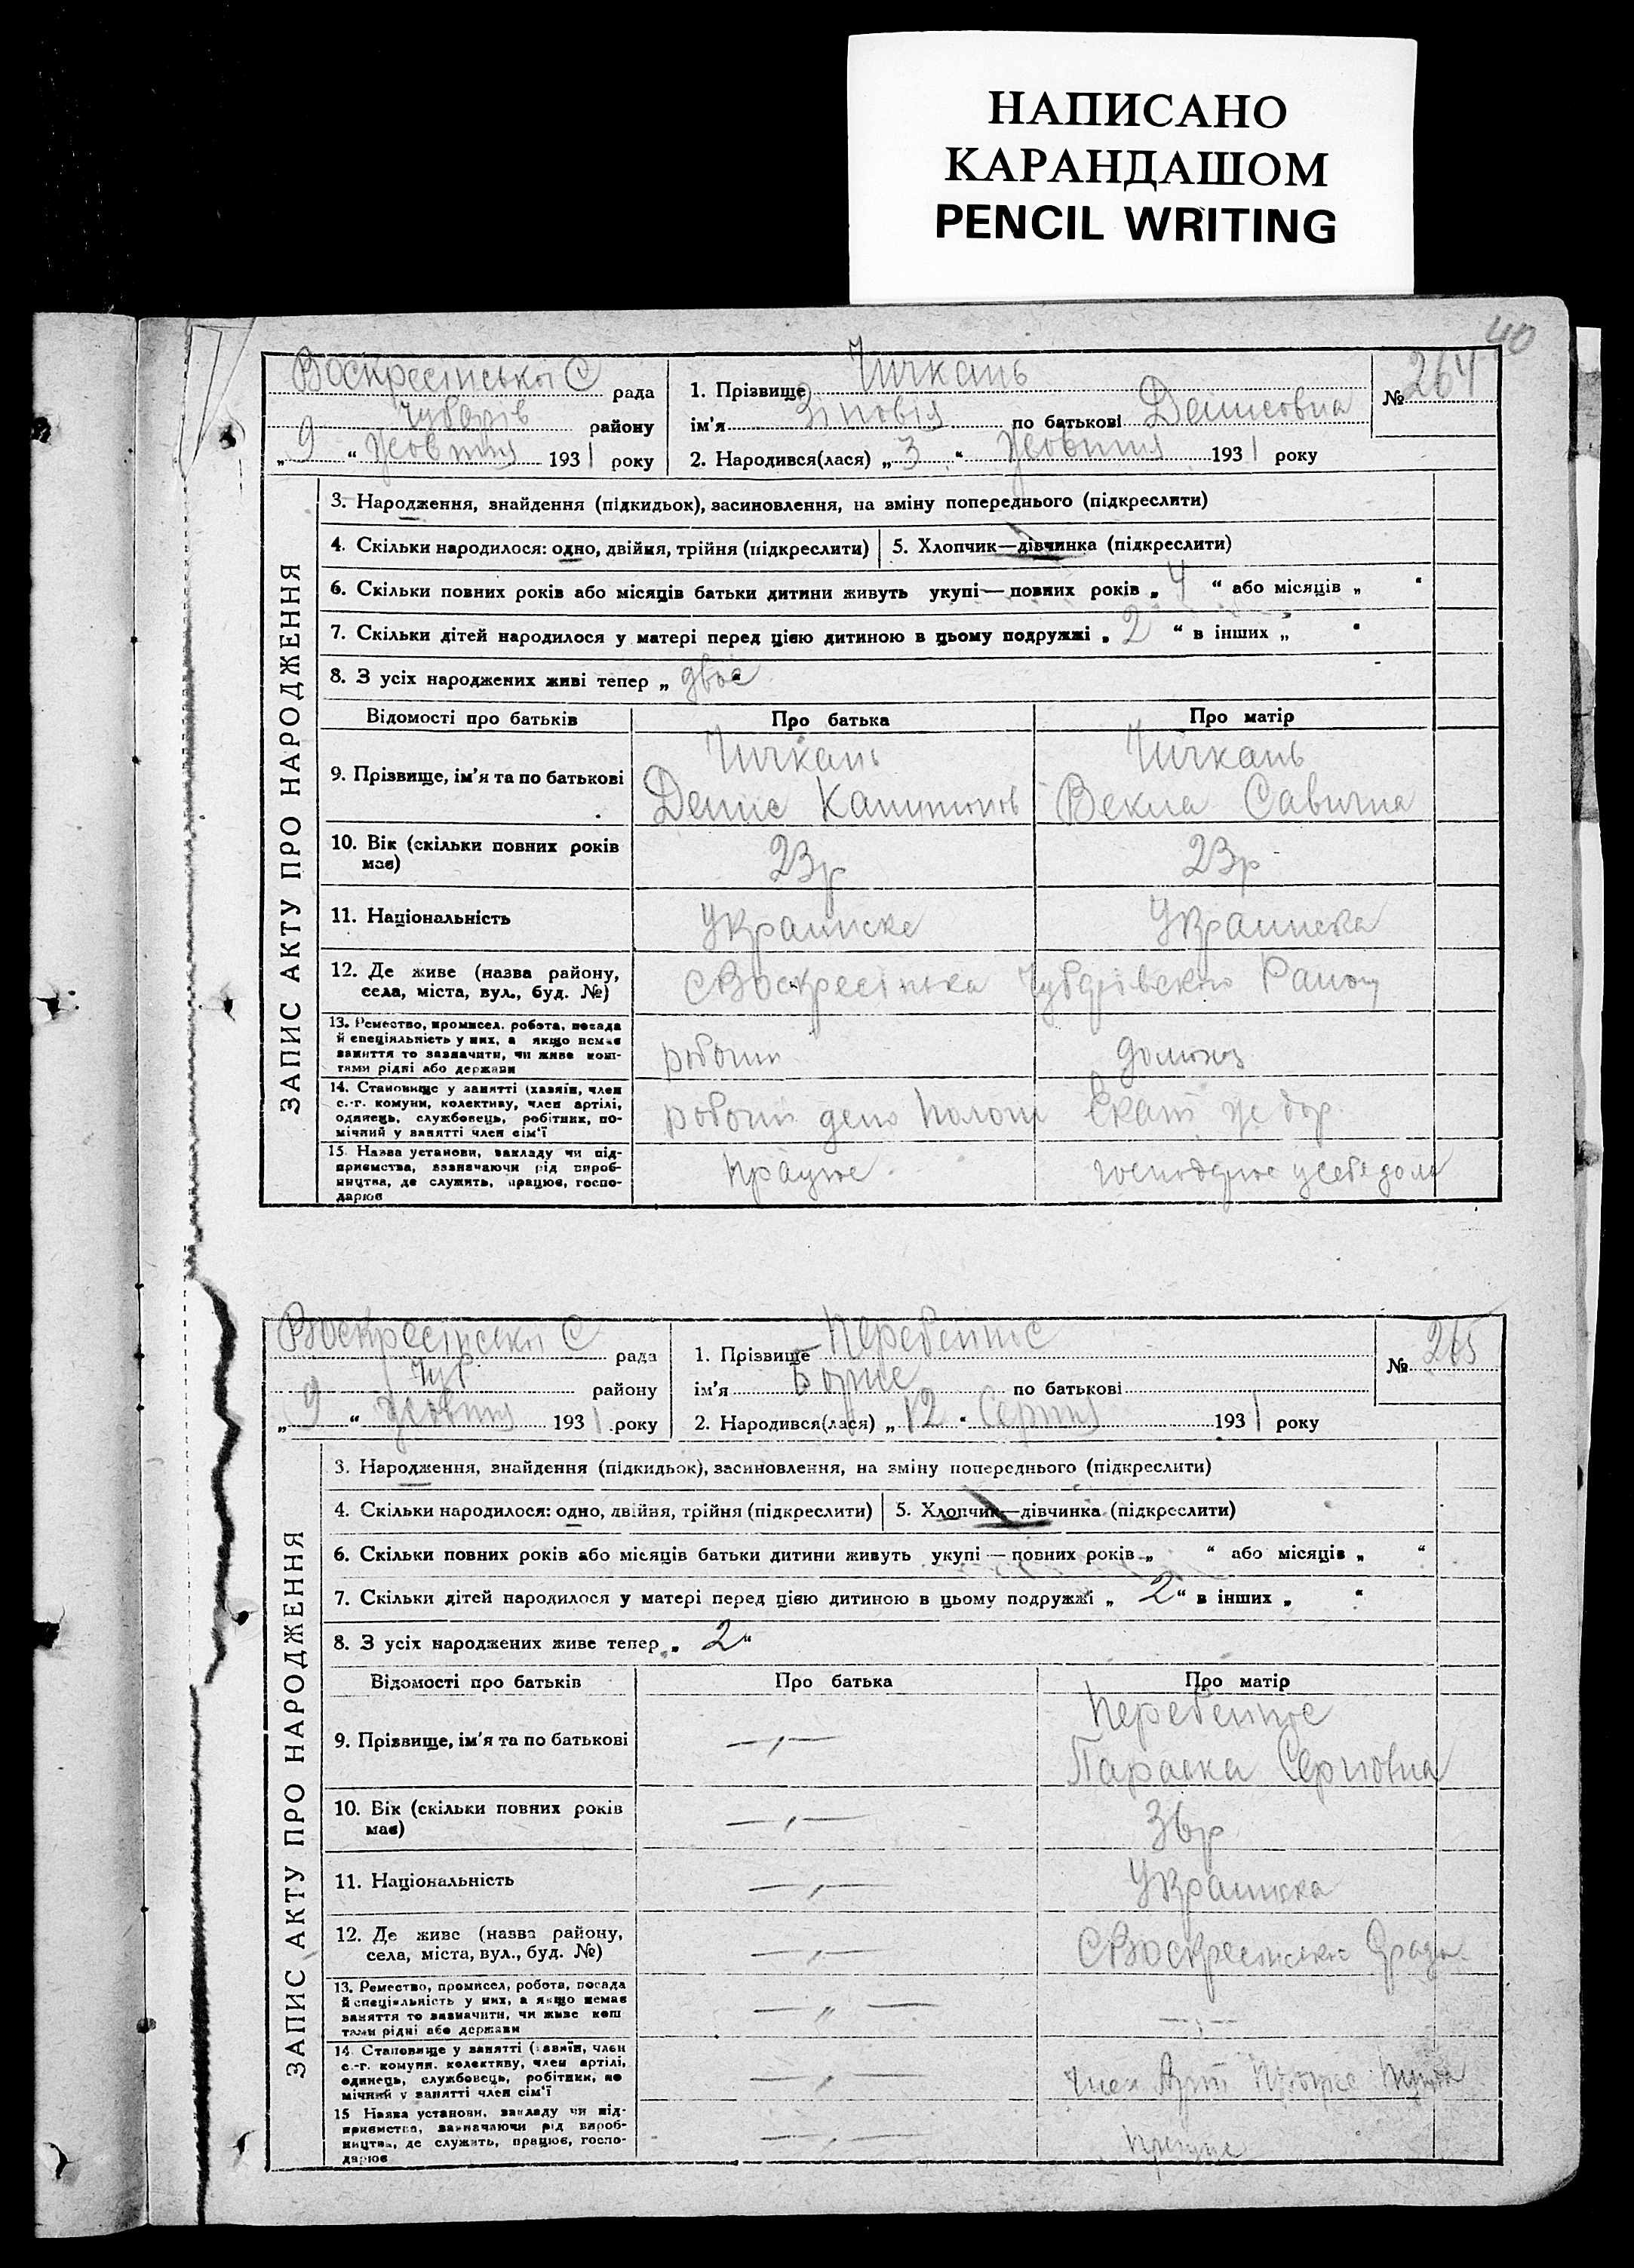 НАПИСАНО
КАРАНДАШОМ
PENCIL WRITING
40
Воскресінської С рада
Чубарів району
„ 9 “ Жовтня 1931 року
1. Прізвище Чичкань
ім'я Зіновія по батькові Денисовна
2. Народився(лася) „ 3 “ Жовтня 1931 року
№ 264
ЗАПИС АКТУ ПРО НАРОДЖЕННЯ
3. Народження, знайдення (підкидьок), засиновлення, на зміну попереднього (підкреслити)
4. Скільки народилося: одно, двійня, трійня (підкреслити) 5. Хлопчик—дівчинка (підкреслити)
6. Скільки повних років або місяців батьки дитини живуть укупі—повних років „ 4 “ або місяців „ “
7. Скільки дітей народилося у матері перед цією дитиною в цьому подружжі „ 2 “ в інших „ “
8. З усіх народжених живі тепер „ двоє
Відомості про батьків Про батька Про матір
9. Прізвище, ім'я та по батькові
Чичкань
Денис
Чичкань
Векла Савична
10. Вік (скільки повних років
має)
23р
23р
11. Національність
Украинске
Украинска
12. Де живе (назва району,
села, міста, вул., буд. №)
с Воскресінка
13. Ремество, промисел, робота, посада
й спеціяльність у них, а якщо немає
заняття то зазначити, чи живе кош-
тами рідні або держави
робочи
домогоз
14. Становище у занятті (хазяїн, член
с.-г. комуни, колективу, член артілі,
одинець, службовець, робітник, по-
мічний у занятті член сім'ї
робочи депо Пологи
15. Назва установи, закладу чи під-
приємства, зазначаючи рід вироб-
ництва, де служить, працює, госпо-
дарює
працює
господарює у себе дома
Воскресінської С рада
Чуб району
„ 9 “ Жовтня 1931 року
1. Прізвище Перебейніс
ім'я Борис по батькові
2. Народився(лася) „ 12 “ Серпня 1931 року
№ 265
ЗАПИС АКТУ ПРО НАРОДЖЕННЯ
3. Народження, знайдення (підкидьок), засиновлення, на зміну попереднього (підкреслити)
4. Скільки народилося: одно, двійня, трійня (підкреслити) 5. Хлопчик—дівчинка (підкреслити)
6. Скільки повних років або місяців батьки дитини живуть укупі — повних років „ “ або місяців „ “
7. Скільки дітей народилося у матері перед цією дитиною в цьому подружжі „ 2 “ в інших „ “
8. З усіх народжених живе тепер „ 2 “
Відомості про батьків Про батька Про матір
9. Прізвище, ім'я та по батькові
—„—
Перебейніс
Параска Сергіовна
10. Вік (скільки повних років
має)
—„—
36р
11. Національність
—„—
Украинска
12. Де живе (назва району,
села, міста, вул., буд. №)
—„—
13. Ремество, промисел, робота, посада
й спеціяльність у них, а якщо немає
заняття то зазначити, чи живе кош
тами рідні або держави
—„—
—„—
14. Становище у занятті (хазяїн, член
с.-г. комуни, колективу, член артілі,
одинець, службовець, робітник, по
мічний у занятті член сім'ї
—„—
член Арт
15 Назва установи, закладу чи під-
приємства, зазначаючи рід вироб-
ництва, де служить, працює, госпо-
дарює
—„—
працює